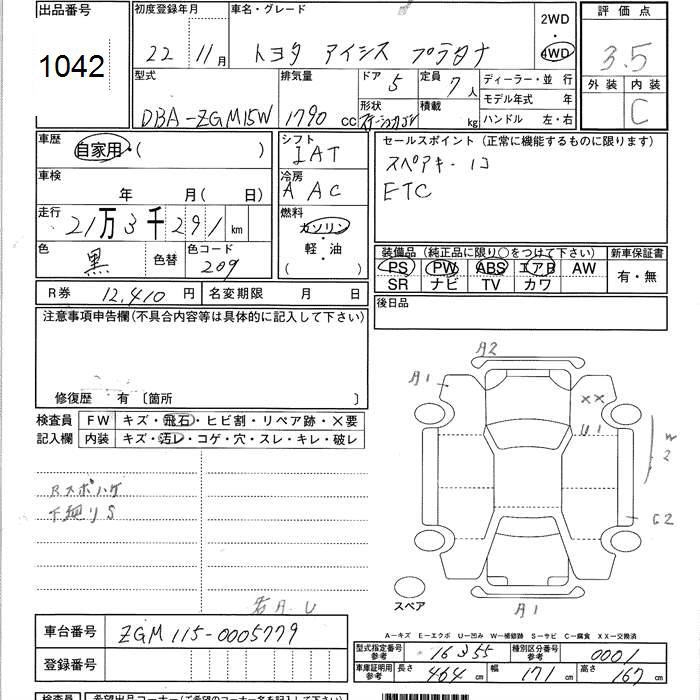 出品番号 初度登録年月 車名・グレード 2WD 評価点
1042 22 11月 トヨタ アイシス プラタナ 4WD 3.5
型式 排気量 ドア 5 定員 7人 ディーラー・並 行 外装 内装
DBA-ZGM15W 1790 cc 形状 積載 kg モデル年式 年 C
ハンドル 左・右
車歴 自家用・( ) シフト IAT セールスポイント (正常に機能するものに限ります)
車検 年 月( 日) 冷房 A AC スペアキー 1コ
ETC
走行 21万3千291km 燃料 ガソリン・軽・油 ( )
色 黒 色替 色コード 209 装備品 (純正品に限り○をつけて下さい) 新車保証書
PS PW ABS エアB AW 有・無
SR ナビ TV カワ
R券 12,410円 名変期限 月 日 後日品
注意事項申告欄(不具合内容等は具体的に記入して下さい)
修復歴 有 〔箇所 〕
検査員 FW キズ・飛石・ヒビ割・リペア跡・×要
記入欄 内装 キズ・汚レ・コゲ・穴・スレ・キレ・破レ
A2
A1
XX
U1
W2
G2
A1
スペア
Rスポハゲ
下廻りS
A-キズ E-エクボ U-凹み W-補修跡 S-サビ C-腐食 XX-交換済
車台番号 ZGM115-0005779 型式指定番号 参考 16355 種別区分番号 参考 0001
登録番号 車庫証明用 参考 長さ 464cm 幅 171cm 高さ 167cm
検査員 希望出品コーナー(ご希望のコーナー名を記入下さい)